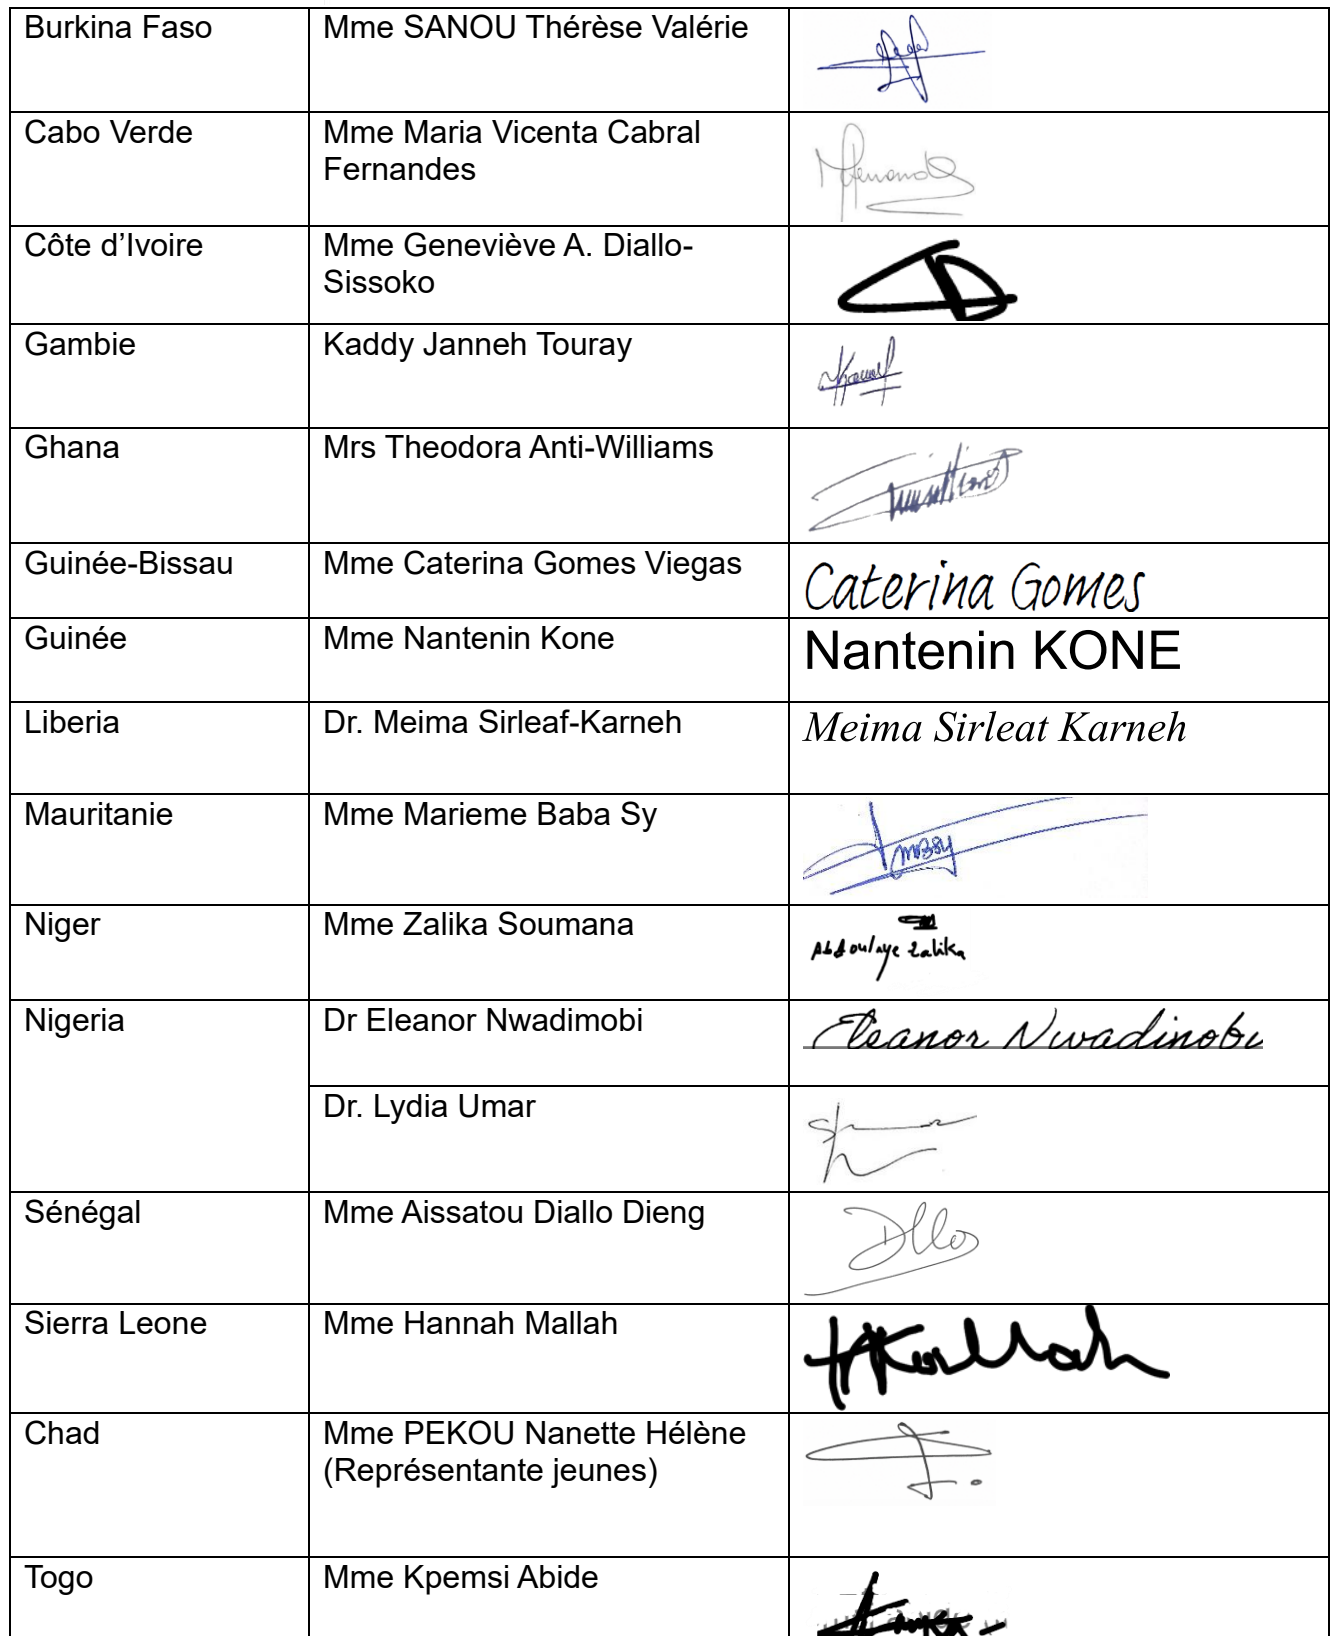 Burkina Faso
Mme SANOU Thérèse Valérie
Cabo Verde
Mme Maria Vicenta Cabral
Fernandes
Côte d’Ivoire
Mme Geneviève A. Diallo-
Sissoko
Gambie
Kaddy Janneh Touray
Ghana
Mrs Theodora Anti-Williams
Guinée-Bissau
Mme Caterina Gomes Viegas
Caterina Gomes
Guinée
Mme Nantenin Kone
Nantenin KONE
Liberia
Dr. Meima Sirleaf-Karneh
Meima Sirleat Karneh
Mauritanie
Mme Marieme Baba Sy
Niger
Mme Zalika Soumana
Abdoulaye Zalika
Nigeria
Dr Eleanor Nwadimobi
Eleanor Nwadinobi
Dr. Lydia Umar
Sénégal
Mme Aissatou Diallo Dieng
Sierra Leone
Mme Hannah Mallah
Chad
Mme PEKOU Nanette Hélène
(Représentante jeunes)
Togo
Mme Kpemsi Abide